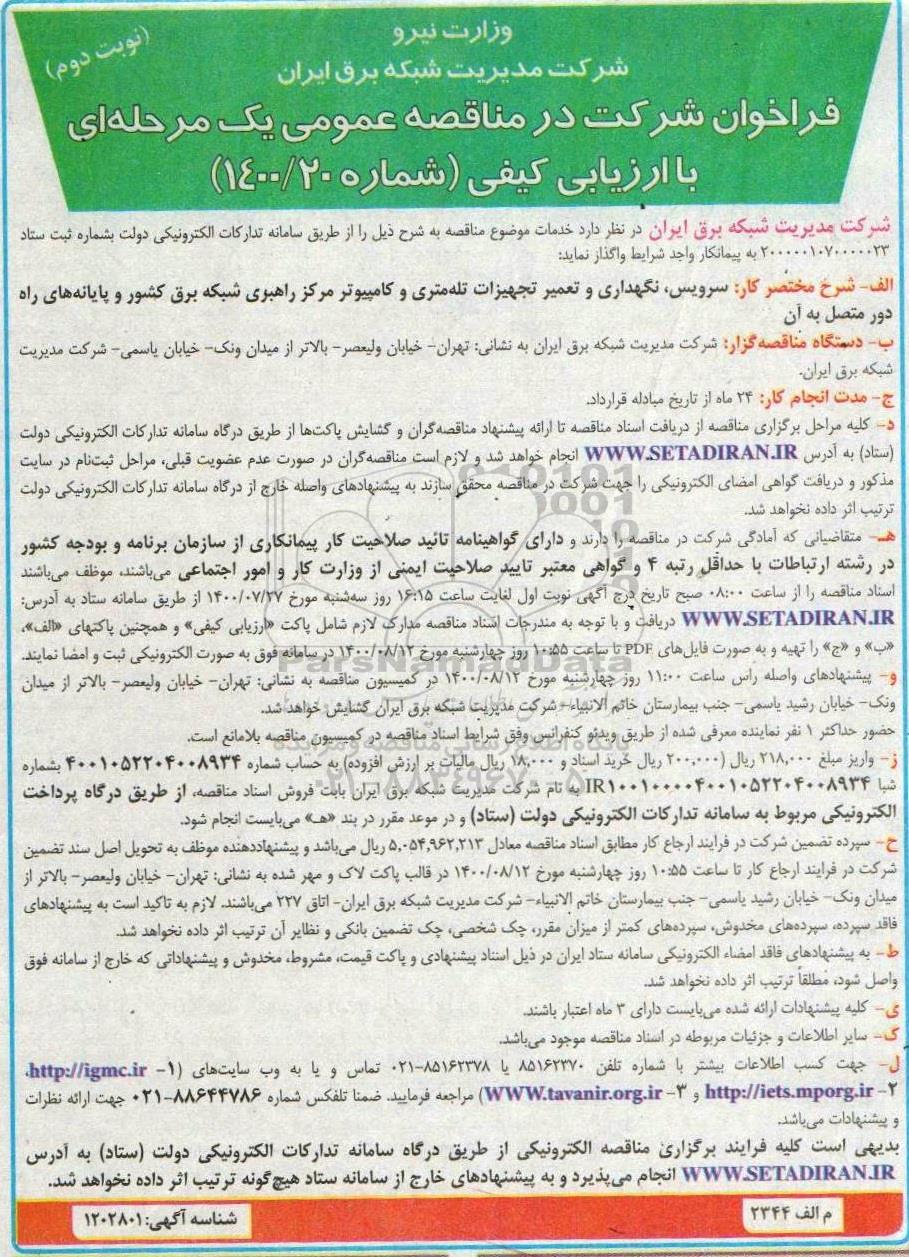 وزارت نیرو
شرکت مدیریت شبکه برق ایران
(نوبت دوم)
فراخوان شرکت در مناقصه عمومی یک مرحله‌ای
با ارزیابی کیفی (شماره ۱۴۰۰/۲۰)
شرکت مدیریت شبکه برق ایران در نظر دارد خدمات موضوع مناقصه به شرح ذیل را از طریق سامانه تدارکات الکترونیکی دولت بشماره ثبت ستاد
۲۰۰۰۰۰۱۰۷۰۰۰۰۰۲۳ به پیمانکار واجد شرایط واگذار نماید:
الف- شرح مختصر کار: سرویس، نگهداری و تعمیر تجهیزات تله‌متری و کامپیوتر مرکز راهبری شبکه برق کشور و پایانه‌های راه
دور متصل به آن
ب- دستگاه مناقصه‌گزار: شرکت مدیریت شبکه برق ایران به نشانی: تهران- خیابان ولیعصر- بالاتر از میدان ونک- خیابان یاسمی- شرکت مدیریت
شبکه برق ایران.
ج- مدت انجام کار: ۲۴ ماه از تاریخ مبادله قرارداد.
د- کلیه مراحل برگزاری مناقصه از دریافت اسناد مناقصه تا ارائه پیشنهاد مناقصه‌گران و گشایش پاکت‌ها از طریق درگاه سامانه تدارکات الکترونیکی دولت
(ستاد) به آدرس WWW.SETADIRAN.IR انجام خواهد شد و لازم است مناقصه‌گران در صورت عدم عضویت قبلی، مراحل ثبت‌نام در سایت
مذکور و دریافت گواهی امضای الکترونیکی را جهت شرکت در مناقصه محقق سازند به پیشنهادهای واصله خارج از درگاه سامانه تدارکات الکترونیکی دولت
ترتیب اثر داده نخواهد شد.
هـ- متقاضیانی که آمادگی شرکت در مناقصه را دارند و دارای گواهینامه تائید صلاحیت کار پیمانکاری از سازمان برنامه و بودجه کشور
در رشته ارتباطات با حداقل رتبه ۴ و گواهی معتبر تایید صلاحیت ایمنی از وزارت کار و امور اجتماعی می‌باشند، موظف می‌باشند
اسناد مناقصه را از ساعت ۰۸:۰۰ صبح تاریخ درج آگهی نوبت اول لغایت ساعت ۱۶:۱۵ روز سه‌شنبه مورخ ۱۴۰۰/۰۷/۲۷ از طریق سامانه ستاد به آدرس:
WWW.SETADIRAN.IR دریافت و با توجه به مندرجات اسناد مناقصه مدارک لازم شامل پاکت «ارزیابی کیفی» و همچنین پاکتهای «الف»،
«ب» و «ج» را تهیه و به صورت فایل‌های PDF تا ساعت ۱۰:۵۵ روز چهارشنبه مورخ ۱۴۰۰/۰۸/۱۲ در سامانه فوق به صورت الکترونیکی ثبت و امضا نمایند.
و- پیشنهادهای واصله راس ساعت ۱۱:۰۰ روز چهارشنبه مورخ ۱۴۰۰/۰۸/۱۲ در کمیسیون مناقصه به نشانی: تهران- خیابان ولیعصر- بالاتر از میدان
ونک- خیابان رشید یاسمی- جنب بیمارستان خاتم الانبیاء- شرکت مدیریت شبکه برق ایران گشایش خواهد شد.
حضور حداکثر ۱ نفر نماینده معرفی شده از طریق ویدئو کنفرانس وفق شرایط اسناد مناقصه در کمیسیون مناقصه بلامانع است.
ز- واریز مبلغ ۲۱۸,۰۰۰ ریال (۲۰۰,۰۰۰ ریال خرید اسناد و ۱۸,۰۰۰ ریال مالیات بر ارزش افزوده) به حساب شماره ۴۰۰۱۰۵۲۲۰۴۰۰۸۹۳۴ بشماره
شبا IR۱۰۰۱۰۰۰۰۴۰۰۱۰۵۲۲۰۴۰۰۸۹۳۴ به نام شرکت مدیریت شبکه برق ایران بابت فروش اسناد مناقصه، از طریق درگاه پرداخت
الکترونیکی مربوط به سامانه تدارکات الکترونیکی دولت (ستاد) و در موعد مقرر در بند «هـ» می‌بایست انجام شود.
ح- سپرده تضمین شرکت در فرایند ارجاع کار مطابق اسناد مناقصه معادل ۵,۰۵۴,۹۶۲,۲۱۳ ریال می‌باشد و پیشنهاددهنده موظف به تحویل اصل سند تضمین
شرکت در فرایند ارجاع کار تا ساعت ۱۰:۵۵ روز چهارشنبه مورخ ۱۴۰۰/۰۸/۱۲ در قالب پاکت لاک و مهر شده به نشانی: تهران- خیابان ولیعصر- بالاتر از
میدان ونک- خیابان رشید یاسمی- جنب بیمارستان خاتم الانبیاء- شرکت مدیریت شبکه برق ایران- اتاق ۲۲۷ می‌باشند. لازم به تاکید است به پیشنهادهای
فاقد سپرده، سپرده‌های مخدوش، سپرده‌های کمتر از میزان مقرر، چک شخصی، چک تضمین بانکی و نظایر آن ترتیب اثر داده نخواهد شد.
ط- به پیشنهادهای فاقد امضاء الکترونیکی سامانه ستاد ایران در ذیل اسناد پیشنهادی و پاکت قیمت، مشروط، مخدوش و پیشنهاداتی که خارج از سامانه فوق
واصل شود، مطلقاً ترتیب اثر داده نخواهد شد.
ی- کلیه پیشنهادات ارائه شده می‌بایست دارای ۳ ماه اعتبار باشند.
ک- سایر اطلاعات و جزئیات مربوطه در اسناد مناقصه موجود می‌باشد.
ل- جهت کسب اطلاعات بیشتر با شماره تلفن ۸۵۱۶۲۳۷۰ یا ۸۵۱۶۲۳۷۸-۰۲۱ تماس و یا به وب سایت‌های (۱- http://igmc.ir،
۲- http://iets.mporg.ir و ۳- WWW.tavanir.org.ir) مراجعه فرمایید. ضمنا تلفکس شماره ۸۸۶۴۴۷۸۶-۰۲۱ جهت ارائه نظرات
و پیشنهادات می‌باشد.
بدیهی است کلیه فرایند برگزاری مناقصه الکترونیکی از طریق درگاه سامانه تدارکات الکترونیکی دولت (ستاد) به آدرس
WWW.SETADIRAN.IR انجام می‌پذیرد و به پیشنهادهای خارج از سامانه ستاد هیچ‌گونه ترتیب اثر داده نخواهد شد.
م الف ۲۳۴۴
شناسه آگهی: ۱۲۰۲۸۰۱
ParsNamadData